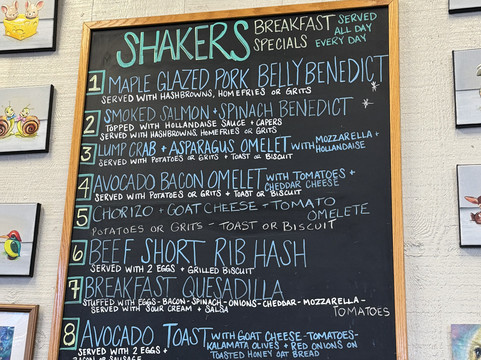 SHAKERS BREAKFAST SPECIALS SERVED ALL DAY EVERY DAY
1 MAPLE GLAZED PORK BELLY BENEDICT
SERVED WITH HASHBROWNS, HOMEFRIES OR GRITS
2 SMOKED SALMON + SPINACH BENEDICT
TOPPED WITH HOLLANDAISE SAUCE + CAPERS
SERVED WITH HASHBROWNS HOMEFRIES OR GRITS
3 LUMP CRAB + ASPARAGUS OMELET WITH MOZZARELLA + HOLLANDAISE
SERVED WITH POTATOES OR GRITS + TOAST OR BISCUIT
4 AVOCADO BACON OMELET WITH TOMATOES + CHEDDAR CHEESE
SERVED WITH POTATOES OR GRITS + TOAST OR BISCUIT
5 CHORIZO + GOAT CHEESE + TOMATO OMELETE
POTATOES OR GRITS - TOAST OR BISCUIT
6 BEEF SHORT RIB HASH
SERVED WITH 2 EGGS + GRILLED BISCUIT
7 BREAKFAST QUESADILLA
STUFFED WITH EGGS - BACON - SPINACH - ONIONS - CHEDDAR - MOZZARELLA - TOMATOES
SERVED WITH SOUR CREAM + SALSA
8 AVOCADO TOAST WITH GOAT CHEESE - TOMATOES - KALAMATA OLIVES + RED ONIONS ON TOASTED HONEY OAT BREAD
SERVED WITH 2 EGGS +
BACON OR SAUSAGE